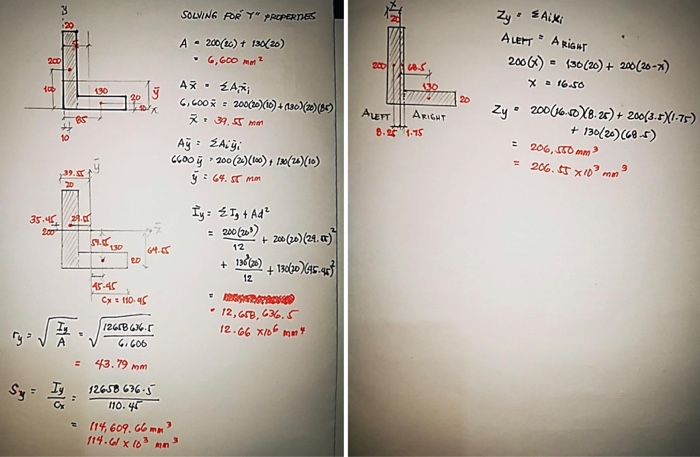 y
20
200
100
130
20
10
ȳ
x
85
10
SOLVING FOR "Y" PROPERTIES
A = 200(20) + 130(20)
= 6,600 mm²
Ax̄ = ΣAix̄i
6,600x̄ = 200(20)(10) + (130)(20)(85)
x̄ = 39.55 mm
Aȳ = ΣAiȳi
6600ȳ = 200(20)(100) + 130(20)(10)
ȳ = 64.55 mm
39.55
ȳ
20
35.45
200
29.55
x̄
54.55
130
64.55
20
45.45
Cx = 110.45
Īy = ΣIg + Ad²
= 200(20³)/12 + 200(20)(29.55)²
+ 130³(20)/12 + 130(20)(45.45)²
=
= 12,658,636.5
12.66 x10⁶ mm⁴
ry = √(Iy/A) = √(12658636.5/6,600)
= 43.79 mm
Sy = Iy/Cx = 12658636.5/110.45
= 114,609.66 mm³
114.61 x 10³ mm³
x
20
200
68.5
130
20
A LEFT
A RIGHT
8.25
1.75
Zy = ΣAixi
A LEFT = A RIGHT
200(x) = 130(20) + 200(20-x)
x = 16.50
Zy = 200(16.50)(8.25) + 200(3.5)(1.75)
+ 130(20)(68.5)
= 206,550 mm³
= 206.55 x10³ mm³